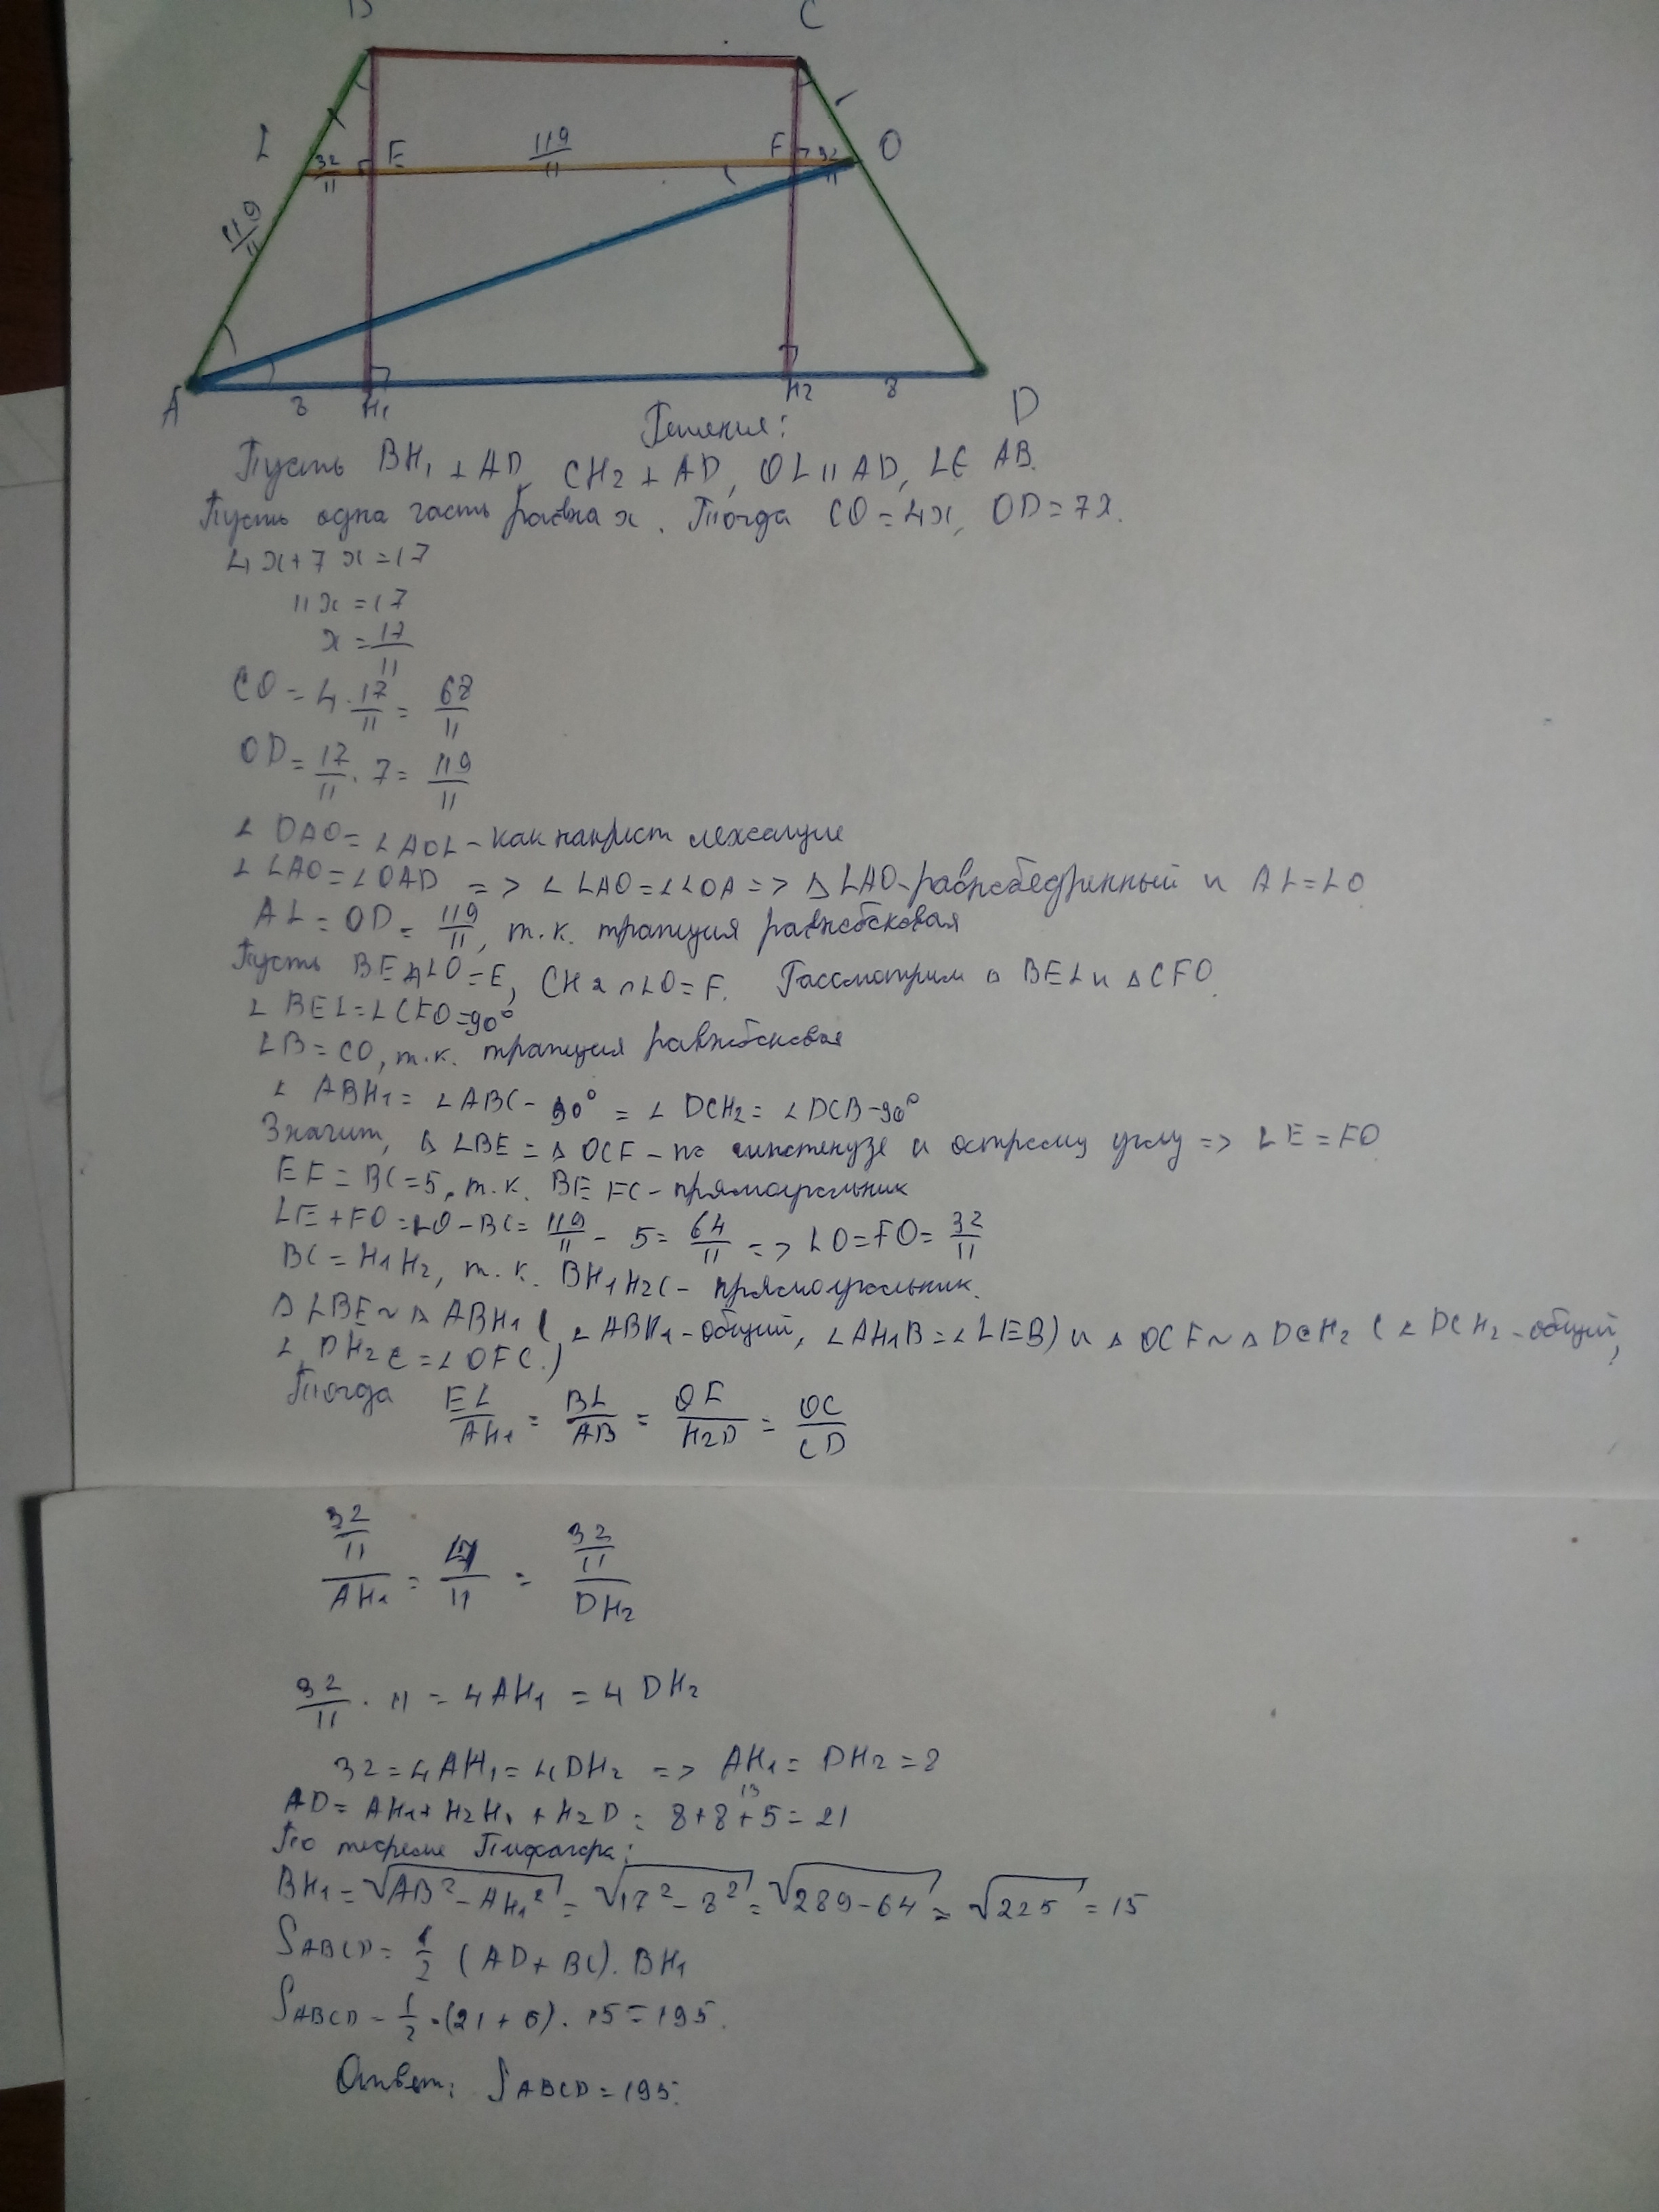 C
L
E
F
O
119/11
32/11
32/11
119/11
A
8
H₁
H₂
8
D
Решение:
Пусть BH₁ ⊥ AD, CH₂ ⊥ AD, OL || AD, L∈ AB.
Пусть одна часть равна x. Тогда CO = 4x, OD = 7x.
4x + 7x = 17
11x = 17
x = 17/11
CO = 4 · 17/11 = 68/11
OD = 17/11 · 7 = 119/11
∠ DAO = ∠ AOL - как накрест лежащие
∠ LAO = ∠OAD => ∠ LAO = ∠ LOA => △ LAO - равнобедренный и AL = LO
AL = OD = 119/11, т.к. трапция равнобоковая
Пусть BE ∩ LO = E, CH₂ ∩ LO = F. Рассмотрим △ BEL и △ CFO.
∠ BEL = ∠ CFO = 90°
LB = CO, т.к. трапция равнобоковая
∠ ABH₁ = ∠ ABC - 90° = ∠ DCH₂ = ∠ DCB - 90°
Значит, △ LBE = △ OCF - по гипотенузе и острому углу => LE = FO
EF = BC = 5, т.к. BEFC - прямоугольник
LE + FO = LO - BC = 119/11 - 5 = 64/11 => LO = FO = 32/11
BC = H₁H₂, т.к. BH₁H₂C - прямоугольник.
△ LBE ~ △ ABH₁ (∠ ABH₁ - общий, ∠ AH₁B = ∠ LEB) и △ OCF ~ △ DCH₂ (∠ DCH₂ - общий,
∠ DH₂C = ∠ OFC.)
Тогда EL/AH₁ = BL/AB = OF/H₂D = OC/CD
32/11/AH₁ = 4/11 = 32/11/DH₂
32/11 · 11 = 4AH₁ = 4DH₂
32 = 4AH₁ = 4DH₂ => AH₁ = DH₂ = 8
13
AD = AH₁ + H₂H₁ + H₂D = 8 + 8 + 5 = 21
По теореме Пифагора:
BH₁ = √AB² - AH₁² = √17² - 8² = √289 - 64 = √225 = 15
S ABCD = 1/2 (AD + BC) · BH₁
S ABCD = 1/2 · (21 + 5) · 15 = 195.
Ответ: S ABCD = 195.